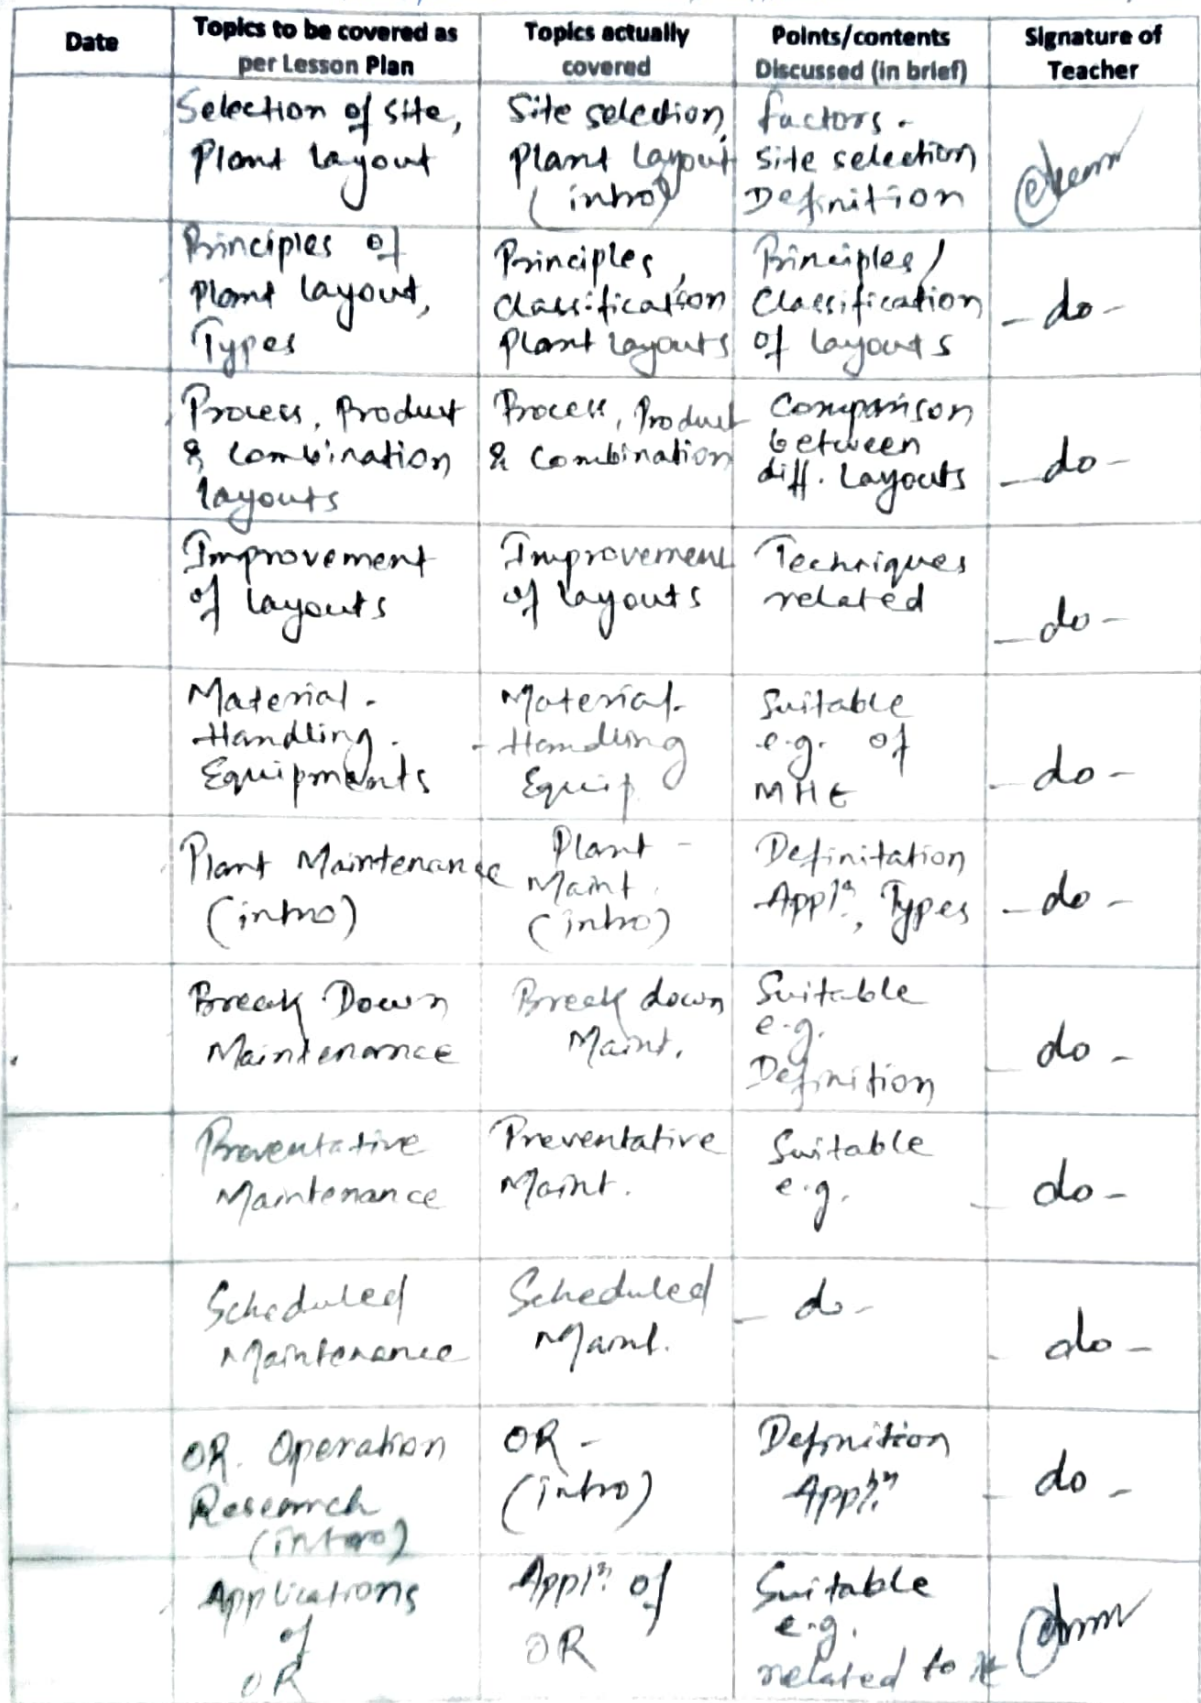 Date
Topics to be covered as
per Lesson Plan
Topics actually
covered
Points/contents
Discussed (in brief)
Signature of
Teacher
Selection of site,
Plant layout
Site selection,
Plant layout
(intro)
factors -
site selection
Definition
Principles of
Plant layout,
Types
Principles,
classification
Plant layouts
Principles/
Classification
of layouts
- do -
Process, Product
& combination
layouts
Process, Product
& combination
Comparison
between
diff. layouts
- do -
Improvement
of layouts
Improvement
of layouts
Techniques
related
- do -
Material -
Handling -
Equipments
Material -
Handling
Equip.
Suitable
e.g. of
MHE
- do -
Plant Maintenance
(intro)
Plant -
Maint.
(intro)
Definitation
Appln, Types
- do -
Break Down
Maintenance
Break down
Maint.
Suitable
e.g.
Definition
- do -
Preventative
Maintenance
Preventative
Maint.
Suitable
e.g.
- do -
Scheduled
Maintenance
Scheduled
Maint.
- do -
- do -
OR. Operation
Research
(intro)
OR -
(intro)
Definition
Appln
- do -
Applications
of
OR
Appln of
OR
Suitable
e.g.
related to it